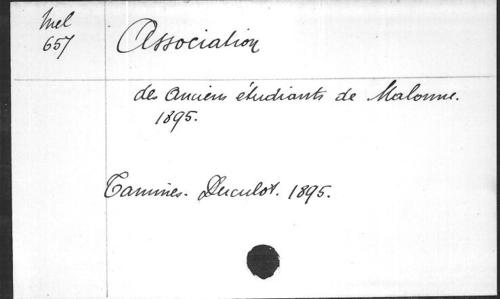 Mel
657
Association
des Anciens étudiants de Malonne.
1895.
Tamines. Duculot. 1895.